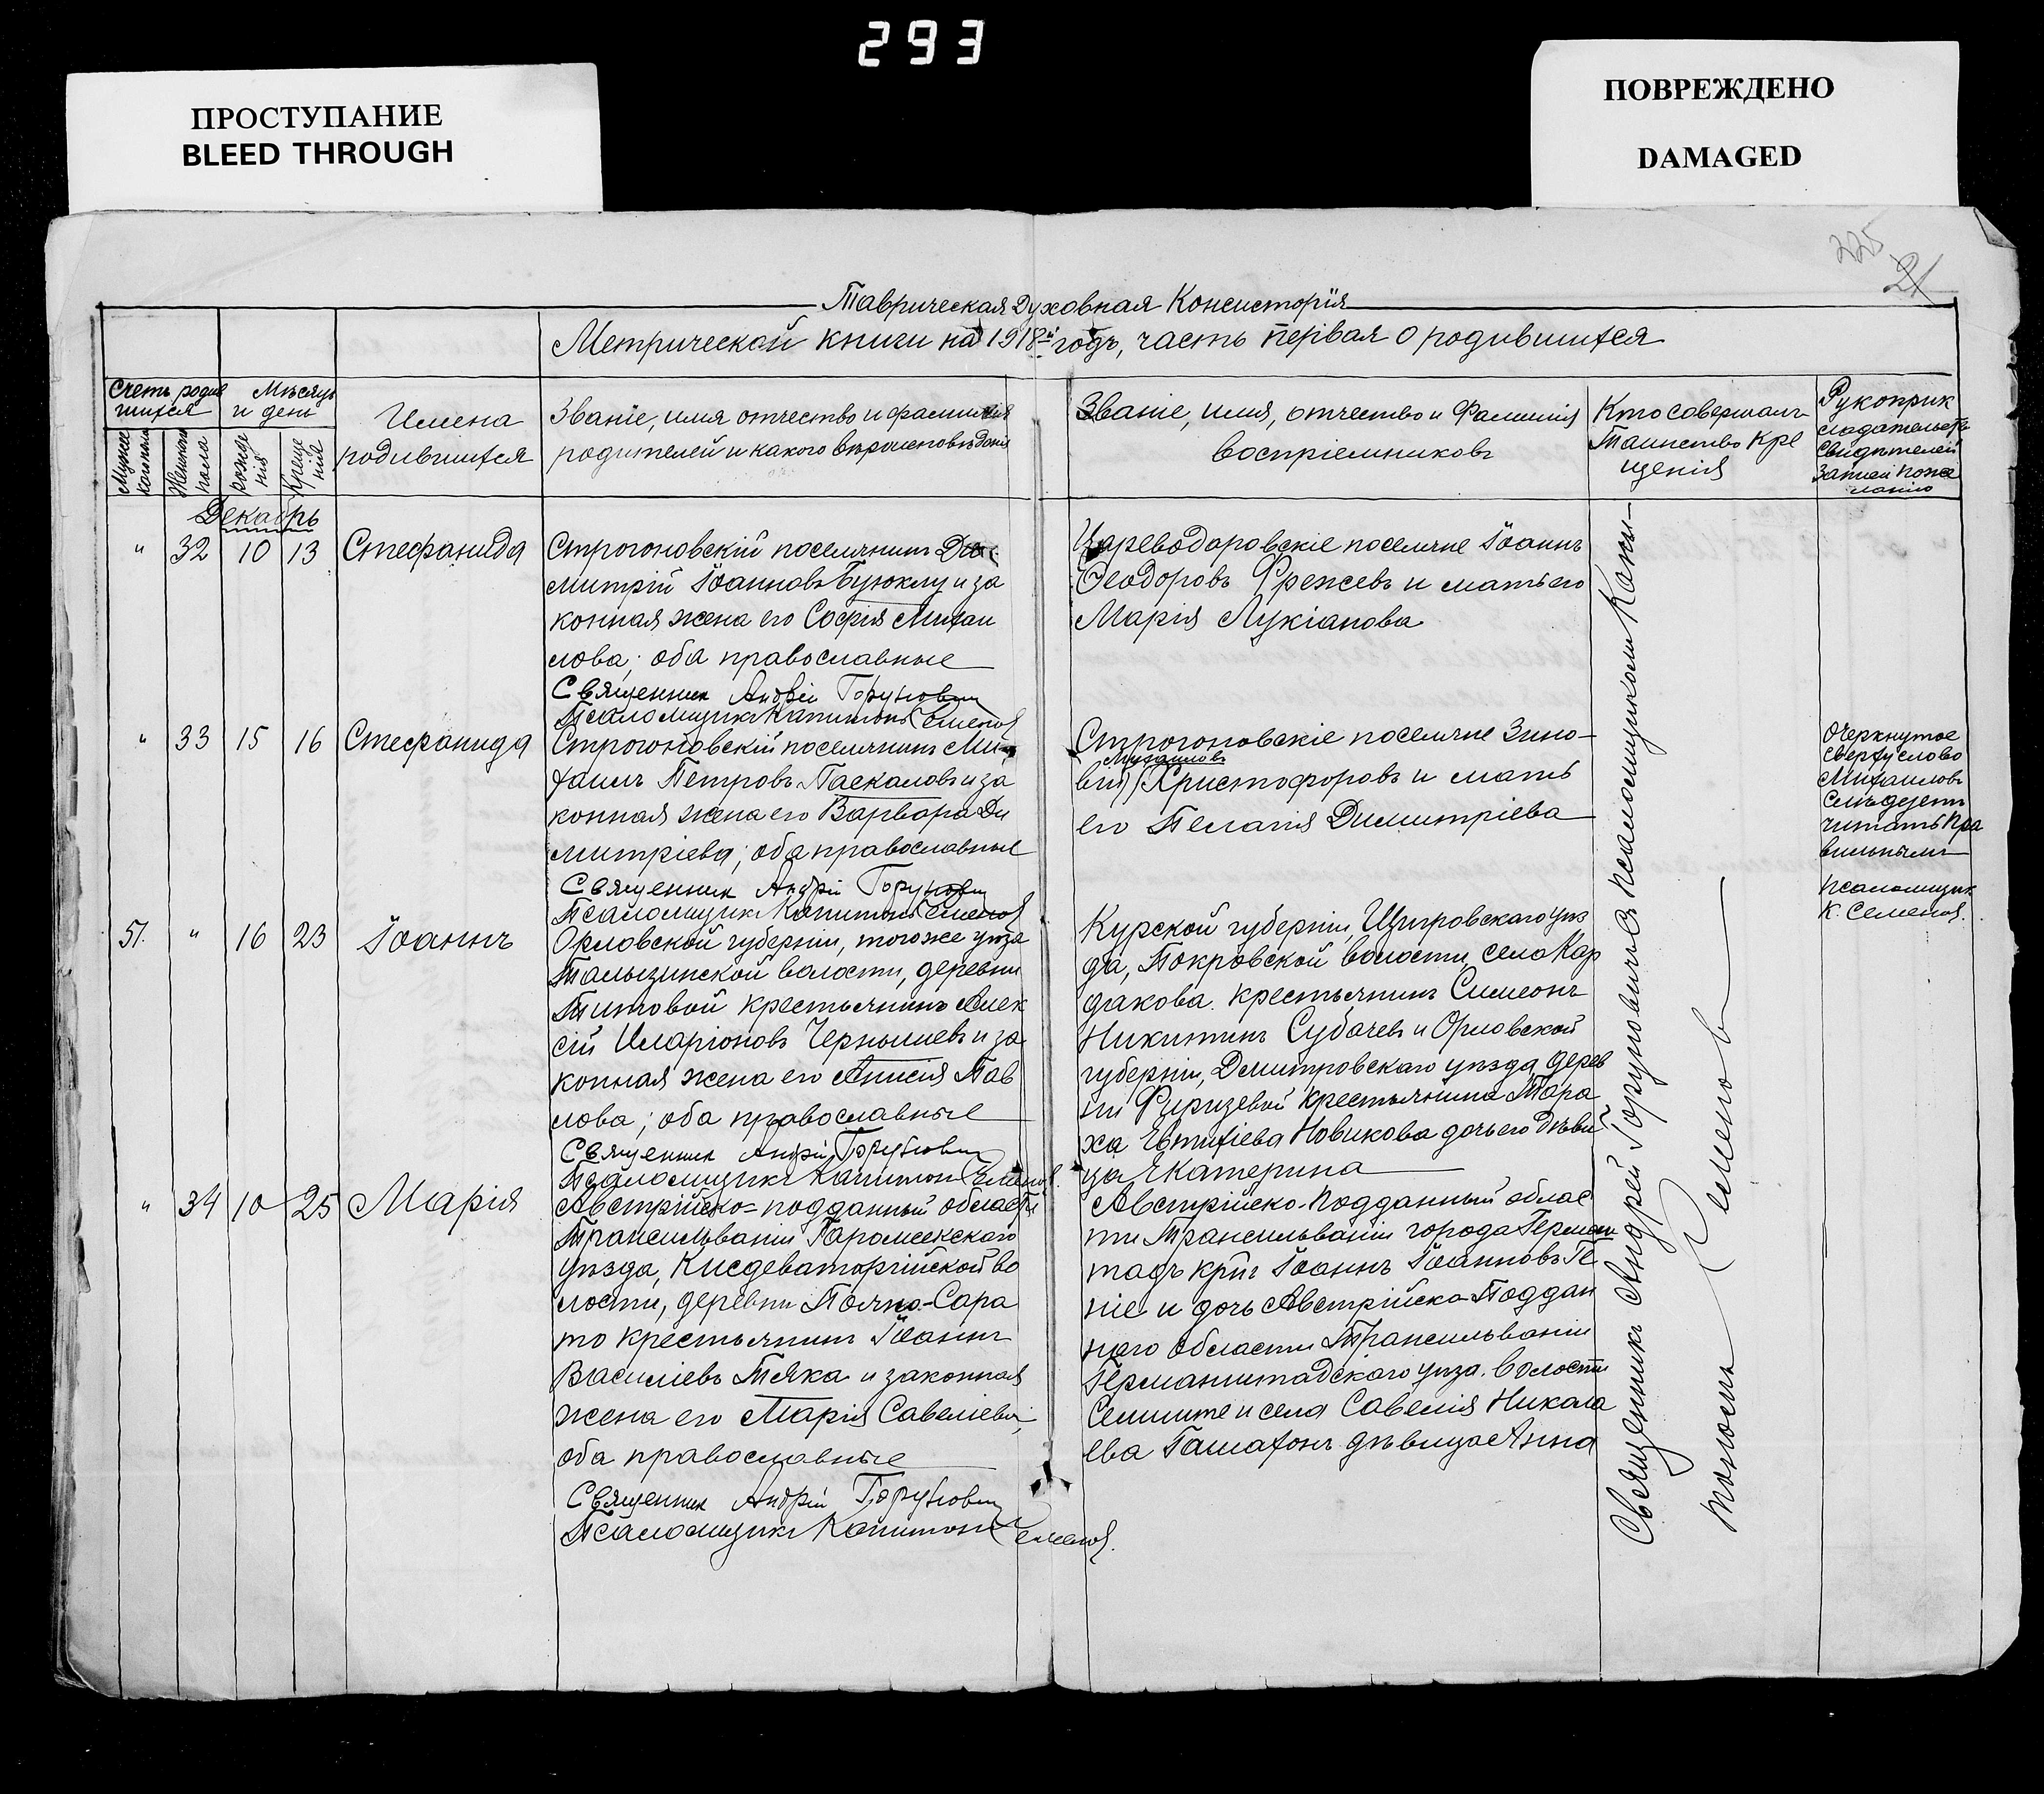 293
ПРОСТУПАНИЕ
BLEED THROUGH
ПОВРЕЖДЕНО
DAMAGED
225
21
Таврическая Духовная Консисторія
Метрической книги на 1918й годъ, часть первая о родившихся
Счетъ родив
шихся
Мѣсяцъ
и день
Мужес
каго пола
Женскаго
пола
рожде
нія
Креще
ніе
Имена
родившихся
Званіе, имя отчество и фамилія
родителей и какого вѣроисповѣданія
Званіе, имя, отчество и Фамилія
воспріемниковъ
Кто совершалъ
Таинство Кре
щенія
Рукоприк
ладательство
свидѣтелей
записи поже
ланію
Декабрь
" 32 10 13 Стефанида
Строгоновскій поселянинъ Ди
митрій Іоанновъ Буюклу и за
конная жена его Софія Михаи
лова; оба православные
Священник Андрей Горунович
Псаломщикъ Капитонъ Семенов
Цареводаровскіе поселяне Іоаннъ
Ѳеодоровъ Фрежевъ и мать его
Марія Лукіанова
" 33 15 16 Стефанида
Строгоновскій поселянинъ Ми
хаилъ Петровъ Паскаловъ и за
конная жена его Варвара Ди
митріева; оба православные
Священник Андрей Горунович
Псаломщикъ Капитонъ Семенов
Строгоновскіе поселяне Зино-
Михаиловъ
вій Христофоровъ и мать
его Пелагія Димитріева
Очеркнутое
сверху слово
Михаиловъ
слѣдуетъ
читать пра
вильнымъ
псаломщик
К. Семенов.
51. " 16 23 Іоаннъ
Орловской губерніи, того же уѣзда
Талызинской волости, деревни
Титовой крестьянинъ Алек
сій Иларіоновъ Чернышевъ и за
конная жена его Анисія Пав
лова; оба православные
Священник Андрей Горунович
Псаломщикъ Капитон Семенов.
Курской губерніи, Щигровскаго уѣз
да, Покровской волости, села Кар
дакова крестьянинъ Симеонъ
Никитинъ Субачевъ и Орловской
губерніи, Дмитровскаго уѣзда, дерев
ни Фирузевой крестьянина Тара
ха Евтихіева Новикова дочь его дѣви
ца Екатерина
" 34 10 25 Марія
Австрійско=подданный области
Трансильваніи Гаромекскаго
уѣзда, Кисдеваторгійской во
лости, деревни Пояно-Сара
то крестьянинъ Іоаннъ
Василіевъ Тяка и законная
жена его Марія Савеліева;
оба православные
Священник Андрей Горунович
Псаломщикъ Капитонъ Семенов.
Австрійско-подданный облас
ти Трансильваніи города Герман
тадъ крiг Іоаннъ Іоанновъ Ге
ніе и дочь Австрійско-Поддан
наго области Трансильваніи
Германштадскаго уѣзда. волости
Селиште и села Савелія Никола
ева Гашахонъ дѣвица Анна
Священникъ Андрей Горуновичъ съ псаломщикомъ Капи-
тономъ Семеновъ